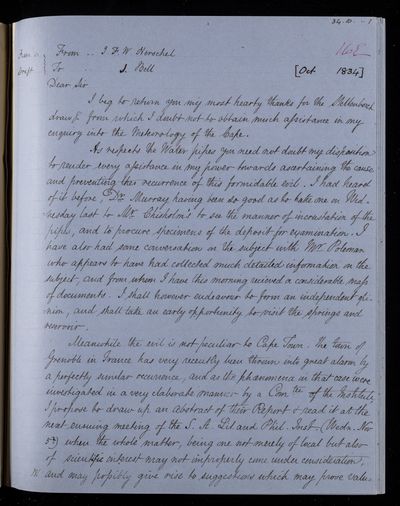 34.10 - 1
From a Draft
From .. J F W Herschel
165
To .. J. Bell
[Oct 1834]
Dear Sir
I beg to return you my most hearty thanks for the Stellenbosch
from which I doubt not to obtain much assistance in my
enquiry into the Meteorology of the Cape.
As respects the Water pipes you need not doubt my disposition
to render every assistance in my power towards ascertaining the cause
and preventing the recurrence of this formidable evil. I had heard
of it before, Dr Murray having been so good as to take me on Wed-
nesday last to Mr Chisholm's to see the manner of incrustation of the
pipes, and to procure specimens of the deposit for examination. I
have also had some conversation on the subject with Mr Poleman
who appears to have had collected much detailed information on the
subject, and from whom I have this morning received a considerable mass
of documents. I shall however endeavour to form an independent opi-
nion, and shall take an early opportunity to visit the springs and
reservoir.
Meanwhile the evil is not peculiar to Cape Town. The town of
Grenoble in France has very recently been thrown into great alarm by
a perfectly similar occurrence, and as the phænomena in that case were
investigated in a very elaborate manner by a Comtee of the Institute,
I propose to draw up an abstract of their Report & read it at the
next ensuing meeting of the S. A. Lit and Phil. Inst. (Wedn. Nov
5) when the whole matter, being one not merely of local but also
of scientific interest may not improperly come under consideration,
and may possibly give rise to suggestions which may prove valu-